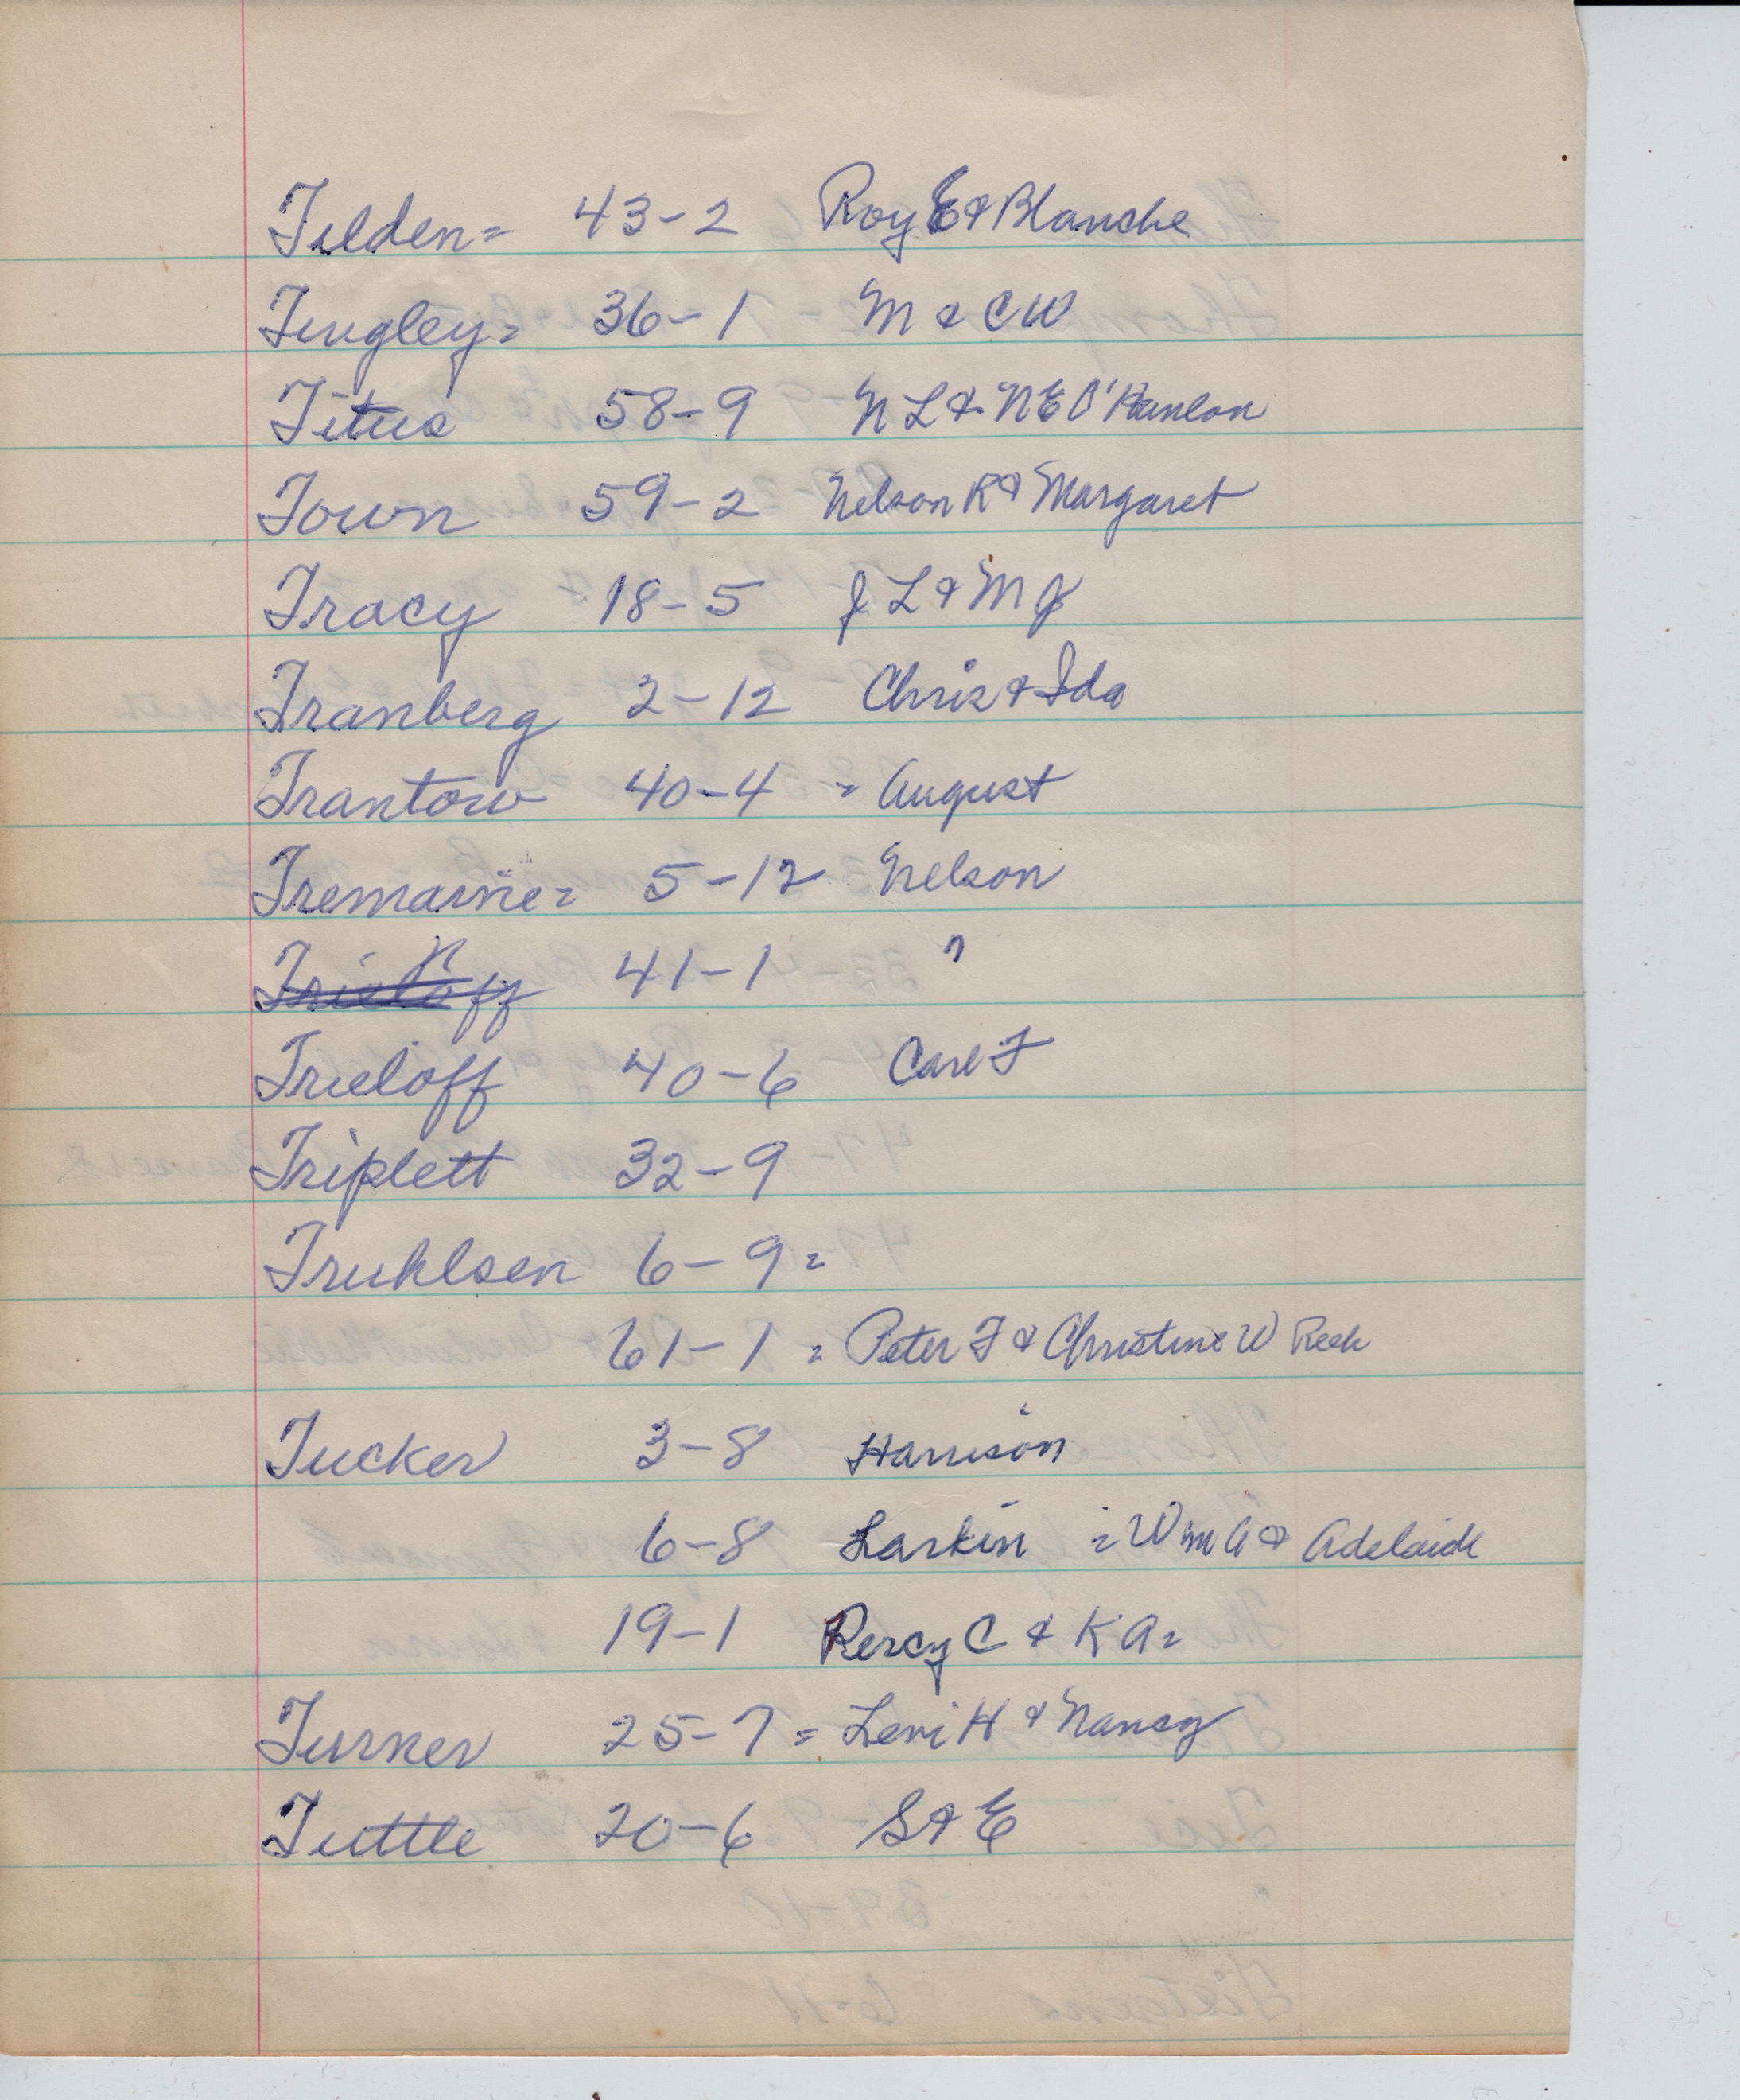 Tilden = 43-2 Roy E & Blanche
Tingley = 36-1 M & C W
Titus 58-9 N L & N E O'Hanlon
Town 59-2 Nelson R & Margaret
Tracy 18-5 J L & M J
Tranberg 2-12 Chris & Ida
Trantow 40-4 = August
Tremaine = 5-12 Nelson
Trieloff 41-1 "
Trieloff 40-6 Carl F
Triplett 32-9
Truhlsen 6-9 =
61-1 = Peter F & Christine W Reek
Tucker 3-8 Harrison
6-8 Larkin = Wm A & Adelaide
19-1 Percy C & K A =
Turner 25-7 = Levi H & Nancy
Tuttle 20-6 S & E